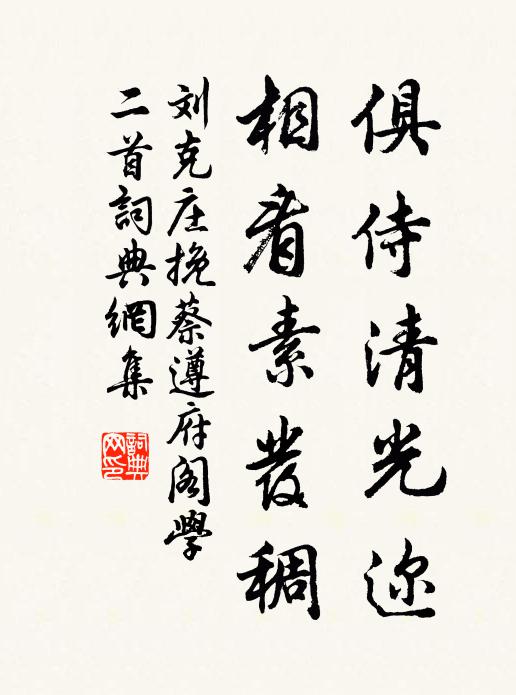 俱侍清光迩
相看素发稠
刘克庄挽蔡遵府阁学
二首詞典網集
詞典网印